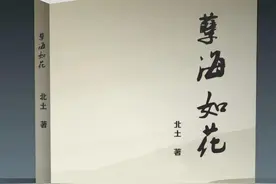 孽海如花
北土 著
孽海如花
北土 著